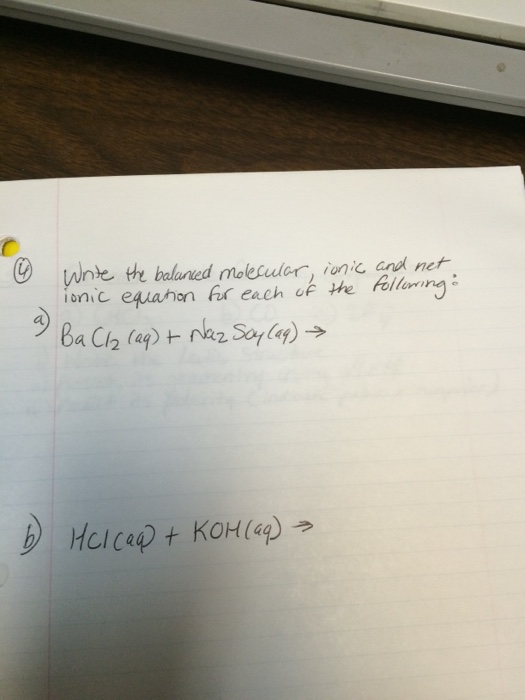 ④ Write the balanced molecular, ionic and net
ionic equation for each of the following:
a) BaCl₂ (aq) + Na₂SO₄ (aq) →
b) HCl(aq) + KOH(aq) →